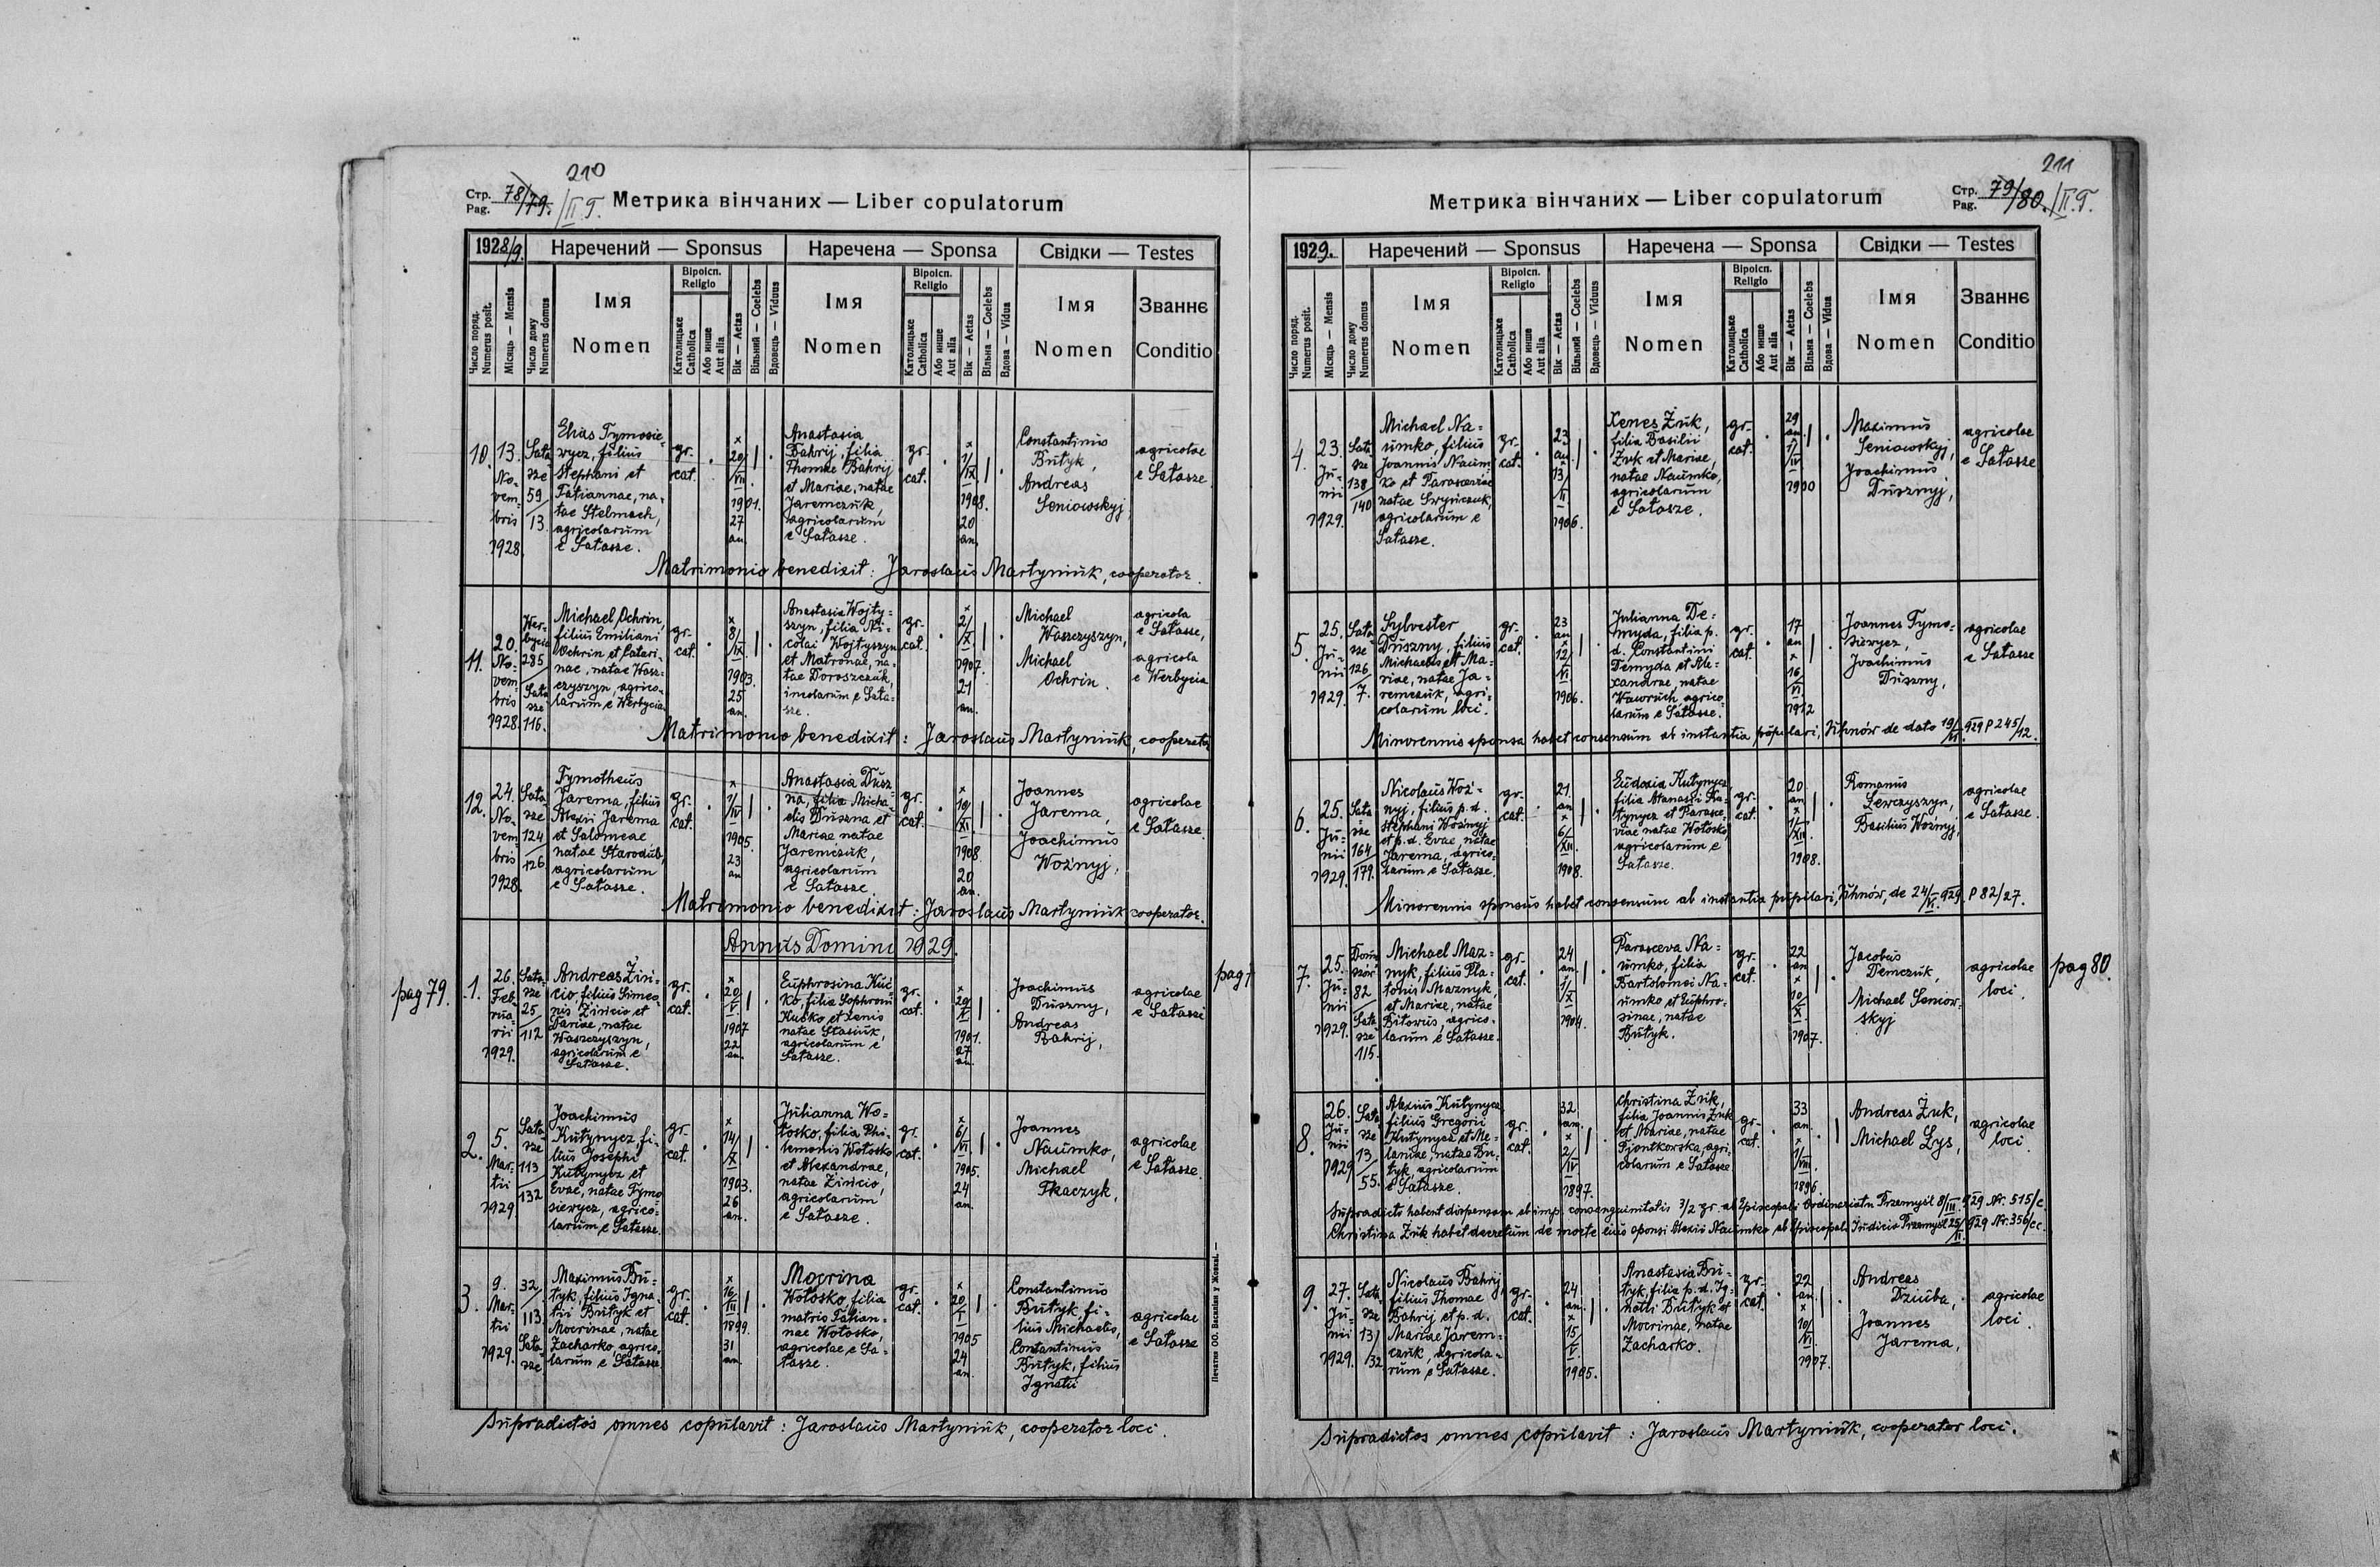 210
Стр. 78/79. /II T.
Pag.
Метрика вінчаних — Liber copulatorum
1928/9.
Наречений — Sponsus
Наречена — Sponsa
Свідки — Testes
Число поряд.
Numerus posit.
Місяць — Mensis
Число дому
Numerus domus
Імя
Nomen
Віроісп.
Religio
Католицьке
Catholica
Або инше
Aut alia
Вік — Aetas
Вільний — Coelebs
Вдовець — Viduus
Імя
Nomen
Віроісп.
Religio
Католицьке
Catholica
Або инше
Aut alia
Вік — Aetas
Вільна — Coelebs
Вдова — Vidua
Імя
Nomen
Званнє
Conditio
10.
13.
No-
vem-
bris
1928.
Sała
sze
59/
13.
Elias Tymosie-
wycz, filius
Stephani et
Tatiannae, na-
tae Stelmach,
agricolarum
e Sałasze.
gr.
cat.
x
20/
VII
1901.
27
an.
Anastasia
Bahrij, filia
Thomae Bahrij
et Mariae, natae
Jaremczuk,
agricolarum
e Sałasze.
gr.
cat.
x
1/
IX
1908.
20
an.
Constantinus
Butyk,
Andreas
Seniowskyj,
agricolae
e Sałasze.
Matrimonio benedixit: Jaroslaus Martyniuk, cooperator.
11.
20.
No-
vem-
bris
1928.
Wer-
bycia
285
Sała
sze
116.
Michael Ochrin,
filius Emiliani
Ochrin et Catari-
nae, natae Wasz-
czyszyn, agrico-
larum e Werbycia.
gr.
cat.
x
8/
IX
1903.
25
an.
Anastasia Wojty-
szyn, filia Ni-
colai Wojtyszyn
et Matronae, na-
tae Doroszczuk,
incolarum e Sała-
sze.
gr.
cat.
x
2/
X
1907.
21
an.
Michael
Waszczyszyn,
Michael
Ochrin.
agricola
e Sałasze,
agricola
e Werbycia
Matrimonio benedixit: Jaroslaus Martyniuk, cooperator
12.
24.
No-
vem-
bris
1928.
Sała
sze
124/
126
Tymotheus
Jarema, filius
Alexii Jarema
et Salomeae
natae Starodub,
agricolarum
e Sałasze.
gr.
cat.
x
1/
IV
1905.
23
an
Anastasia Dusz-
na, filia Micha-
elis Duszna et
Mariae natae
Jaremczuk,
agricolarum
e Sałasze
gr.
cat.
x
10/
XI.
1908.
20
an.
Joannes
Jarema,
Joachimus
Woźnyj,
agricolae
e Sałasze.
Matrimonio benedixit: Jaroslaus Martyniuk cooperator.
Annus Domini 1929.
pag 79.
1.
26.
Feb-
rua-
rii
1929.
Sała-
sze
25/
112
Andreas Zin-
cio, filius Simeo-
nis Zincio et
Dariae, natae
Waszczyszyn,
agricolarum e
Sałasze.
gr.
cat.
x
20/
V
1907
22
an.
Euphrosina Kuć-
ko, filia Sophroni
Kućko et Xenis
natae Stasiuk,
agricolarum e
Sałasze.
gr.
cat.
x
29/
X
1901.
27
an.
Joachimus
Duszny,
Andreas
Bahrij,
agricolae
e Sałasze
2.
5.
Mar-
tii
1929.
Sała-
sze
113
132
Joachimus
Kutynycz, fi-
lius Josephi
Kutynycz et
Evae, natae Tymo
siewycz, agrico-
larum e Sałasze.
gr.
cat.
x
14/
X
1903.
26
an.
Julianna Wo-
łosko, filia Phi-
lemonis Wołosko
et Alexandrae,
natae Zincio,
agricolarum
e Sałasze.
gr.
cat.
x
6/
VI
1905.
24
an.
Joannes
Naumko,
Michael
Tkaczyk,
agricolae
e Sałasze.
3.
9.
Mar-
tii
1929.
32/
113.
Sała-
sze
Maximus Bu-
tyk, filius Igna-
tii Butyk et
Mocrinae, natae
Zacharko, agrico-
larum e Sałasze
gr.
cat.
x
16/
III
1899.
31
an.
Mocrina
Wołosko, filia
matris Tatian-
nae Wołosko,
agricolae e Sa-
łasze.
gr.
cat.
x
20/
I
1905
24
an.
Constantinus
Butyk, fi-
lius Michaelis,
Constantinus
Butyk, filius
Ignatii
agricolae
e Sałasze
Supradictos omnes copulavit: Jaroslaus Martyniuk, cooperator loci.
Печатня ОО. Василіян у Жовкві. —
211
Стр. 79/80. /II.T.
Pag.
Метрика вінчаних — Liber copulatorum
1929.
Наречений — Sponsus
Наречена — Sponsa
Свідки — Testes
Число поряд.
Numerus posit.
Місяць — Mensis
Число дому
Numerus domus
Імя
Nomen
Віроісп.
Religio
Католицьке
Catholica
Або инше
Aut alia
Вік — Aetas
Вільний — Coelebs
Вдовець — Viduus
Імя
Nomen
Віроісп.
Religio
Католицьке
Catholica
Або инше
Aut alia
Вік — Aetas
Вільна — Coelebs
Вдова — Vidua
Імя
Nomen
Званнє
Conditio
4.
23.
Ju-
nii
1929.
Sała
sze
138/
140
Michael Na-
umko, filius
Joannis Naum-
ko et Parasceviae
natae
agricolarum e
Sałasze.
gr.
cat.
23
an
x
13/
II
1906.
Xenes Żuk,
filia Basilii
Żuk et Mariae,
natae Naumko,
agricolarum
e Sałasze.
gr.
cat.
29
an.
1/
IV
1900
Maximus
Seniowskyj,
Joachimus
Dusznyj,
agricolae
e Sałasze
5.
25.
Ju-
nii
1929.
Sała
sze
126
7.
Sylvester
Duszny, filius
Michaelis et Ma-
riae, natae Ja-
remczuk, agri-
colarum loci.
gr.
cat.
23
an
x
12/
VI
1906.
Julianna De-
myda, filia p.
d. Constantini
Demyda et Ale-
xandrae, natae
Waworuch, agrico-
larum e Sałasze.
gr.
cat.
17
an
x
16
VI
1912
Joannes Tymo-
siewycz,
Joachimus
Duszny,
agricolae
e Sałasze
Minorennis sponsa habet consensum ab instantia pupilari, Uhnów de dato 19/VI. 929 P 245/12.
6.
25.
Ju-
nii
1929.
Sała
sze
164
179.
Nicolaus Woź-
nyj, filius p.d.
Stephani Woźnyj
et p.d. Evae, natae
Jarema, agrico-
larum e Sałasze.
gr.
cat.
21.
an
x
6/
XII.
1908.
Eudoxia Kutynycz
filia Atanasii Ku-
tynycz et Parasce-
viae, natae Wołosko,
agricolarum e
Sałasze.
gr.
cat.
20
an
x
1/
XII.
1908.
Romanus
Lewczyszyn,
Basilius Woźnyj,
agricolae
e Sałasze.
Minorennis sponsus habet consensum ab instantia pupilari, Uhnów, de 24/VI. 929. P 82/27.
pag
7.
25.
Ju-
nii
1929.
82
Sała
sze
115.
Michael Maz-
nyk, filius Pla-
tonis Maznyk,
et Mariae, natae
Bitorus, agrico-
larum e Sałasze.
gr.
cat.
24
an.
1/
X
1904.
Parasceva Na-
umko, filia
Bartolomei Na-
umko et Euphro-
sinae, natae
Butyk.
gr.
cat.
22
an
x
10
X
1907.
Jacobus
Demczuk,
Michael Seniow-
skyj
agricolae
loci.
pag 80.
8.
26.
Ju-
nii
1929
Sała
sze
13/
55.
Alexius Kutynycz
filius Gregorii
Kutynycz et Me-
laniae, natae Bu-
tyk, agricolarum
e Sałasze.
gr.
cat.
32
an.
x
2/
IV
1897.
Christina Żuk,
filia Joannis Żuk
et Mariae, natae
Pjontkowska, agri-
colarum e Sałasze
gr.
cat.
33
an.
x
1/
VIII
1896
Andreas Żuk,
Michael Lys,
agricolae
loci
Supradicti habent dispensam ab imp. consanguinitatis 3/2 gr. ab Episcopali Ordinariatu Przemyśl 8/III. 929 Nr. 515/c.
Christina Żuk habet decretum de morte eius sponsi Alexii Naumko ab Episcopali Judicio Przemyśl 25/II 929 Nr. 356/cc.
9.
27.
Ju-
nii
1929.
Sała-
sze
13/
32
Nicolaus Bahrij,
filius Thomae
Bahrij et p.d.
Mariae Jarem-
czuk, agricola-
rum e Sałasze.
gr.
cat.
24
an.
x
15/
V
1905.
Anastasia Bu-
tyk, filia p.d. Ig-
natii Butyk et
Mocrinae, natae
Zacharko.
gr.
cat.
22
an.
x
10/
VI
1907.
Andreas
Dziuba,
Joannes
Jarema,
agricolae
loci.
Supradictos omnes copulavit: Jaroslaus Martyniuk, cooperator loci.